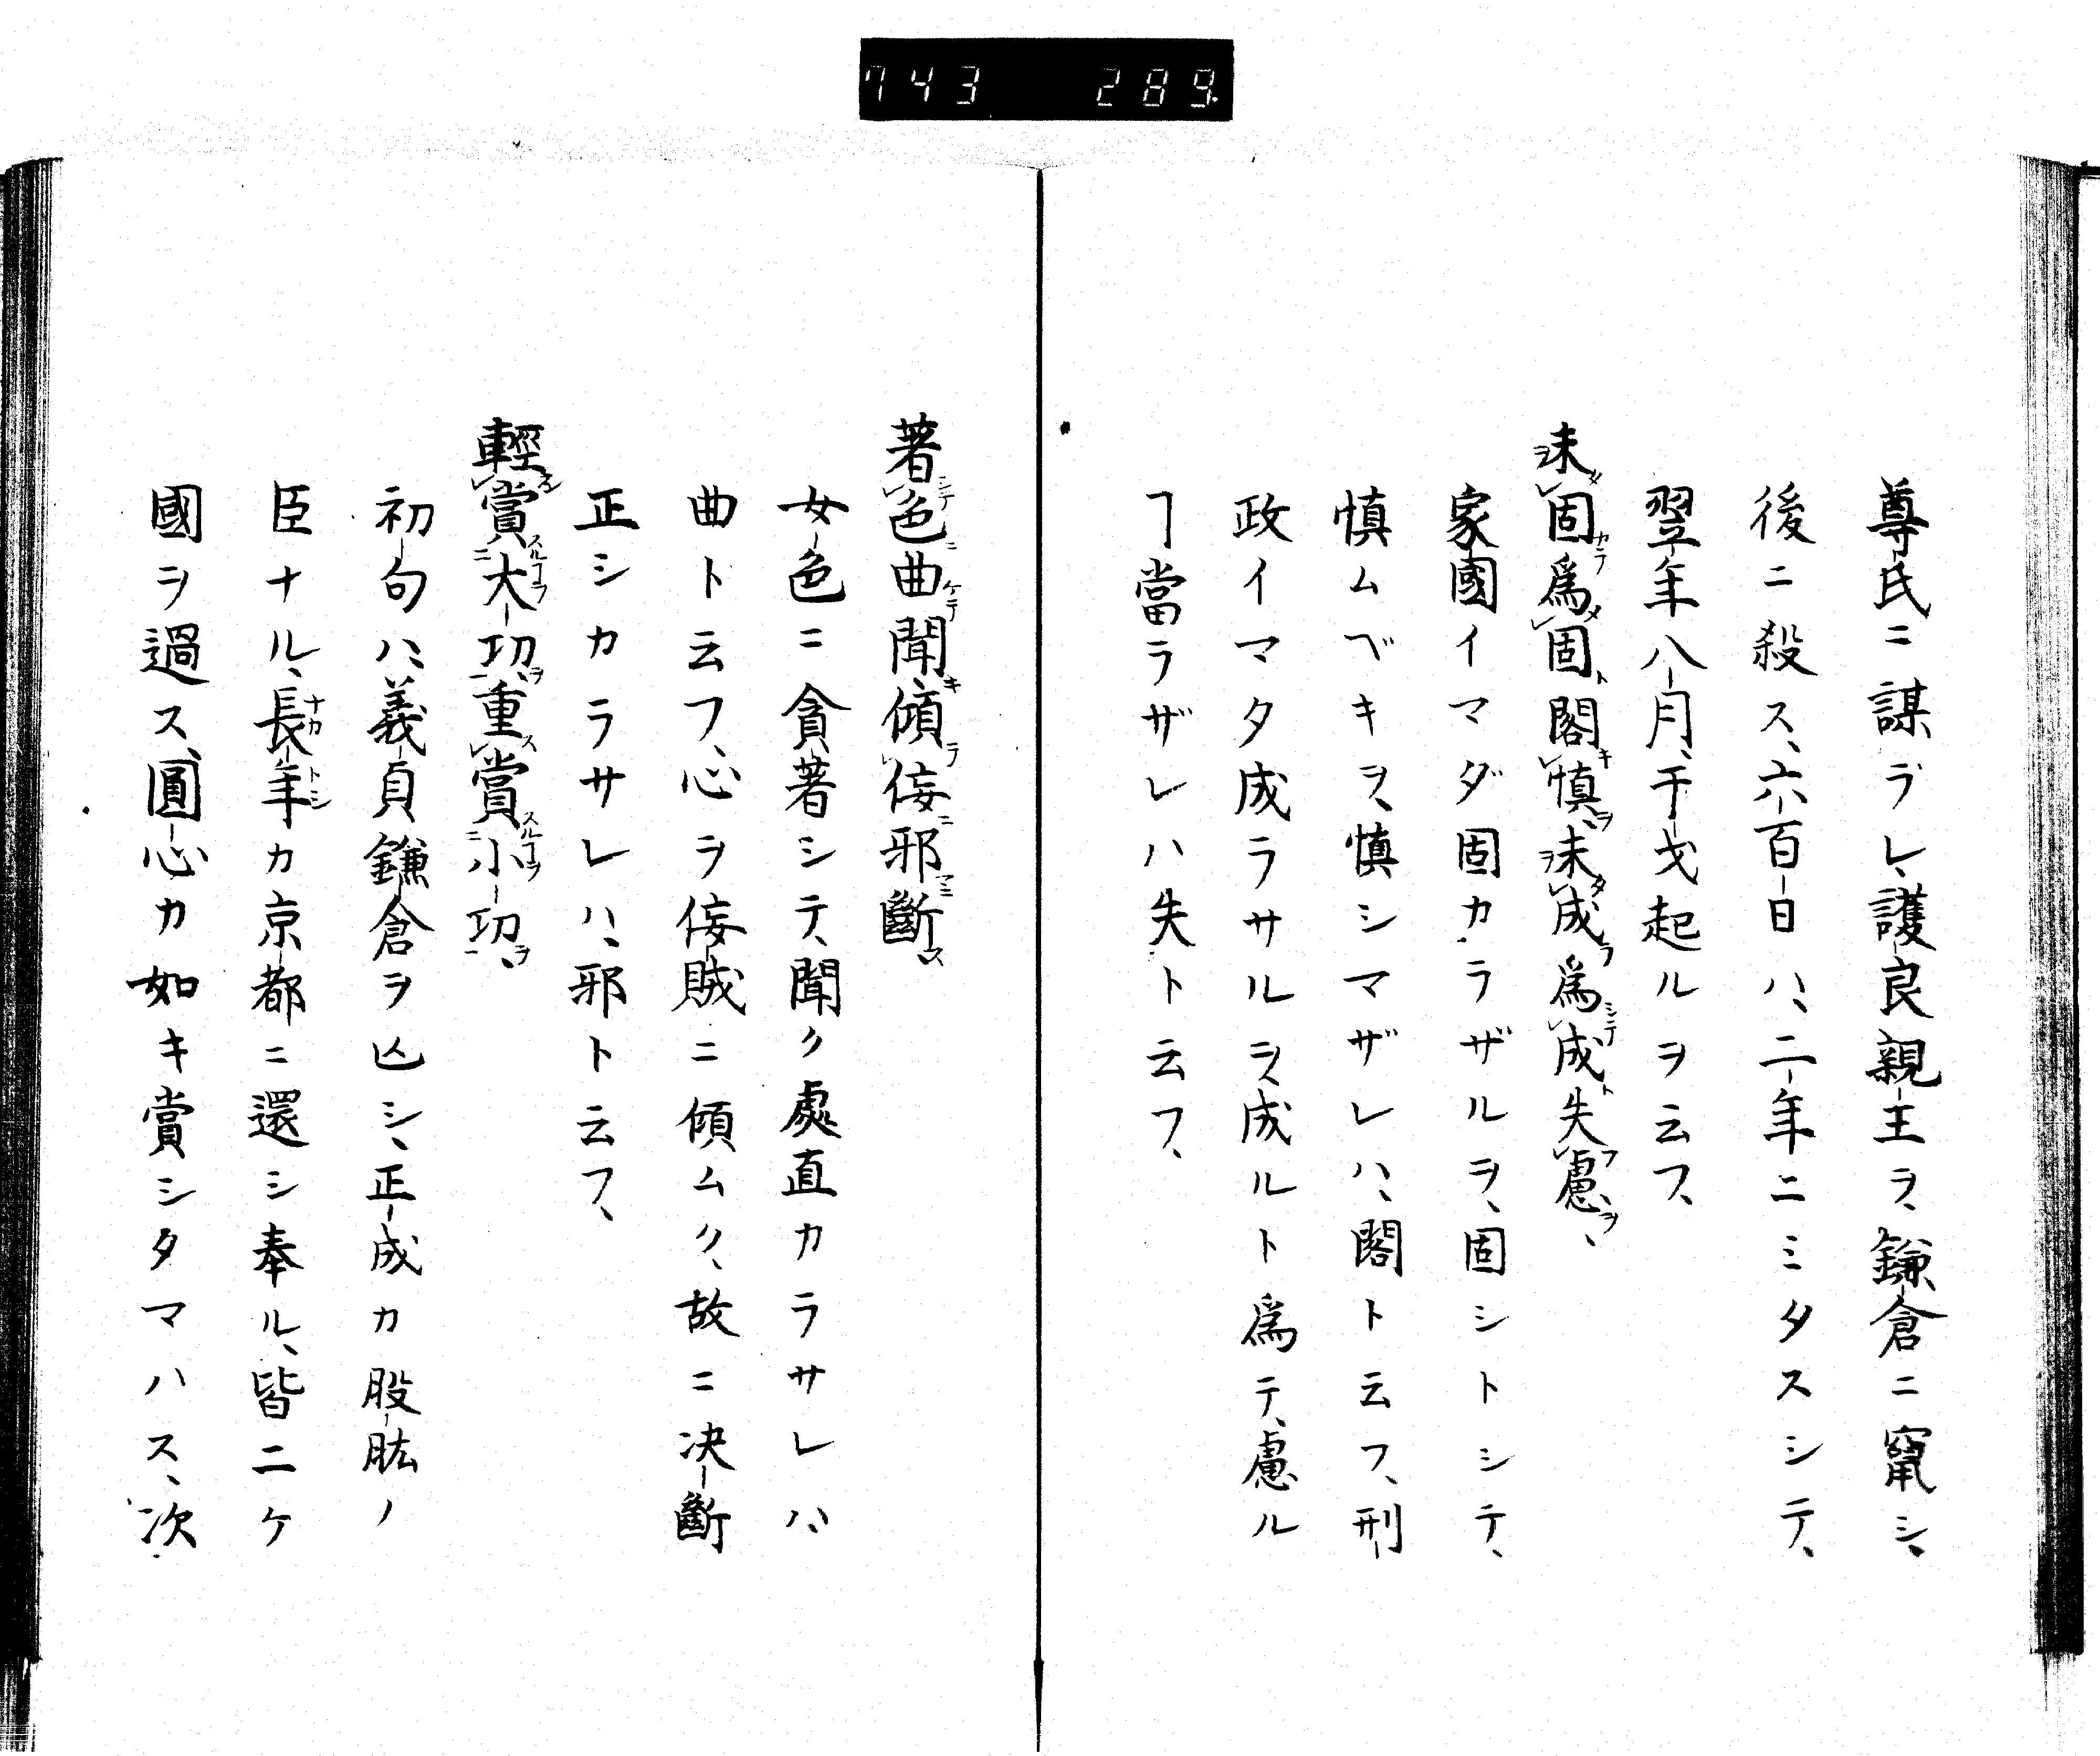 743 289
尊氏ニ謀ラレ、護良親王ヲ、鎌倉ニ竄シ、
後ニ殺ス、六百日ハ、二年ニミタスシテ、
翌年八月、干戈起ルヲ云フ、
未固爲固閣慎、未成爲成失慮、
家國イマダ固カラザルヲ、固シトシテ、
慎ムベキヲ、慎シマザレハ、閣ト云フ、刑
政イマタ成ラサルヲ、成ルト爲テ、慮ル
ヿ當ラザレハ失ト云フ、
著色曲聞、傾侫邪斷
女色ニ貪著シテ、聞ク處直カラサレハ
曲ト云フ、心ヲ侫賊ニ傾ムク、故ニ決斷
正シカラサレハ、邪ト云フ、
輕賞大功、重賞小功、
初句ハ、義貞鎌倉ヲ亾シ、正成カ股肱ノ
臣ナル、長年カ京都ニ還シ奉ル、皆二ケ
國ヲ過ス、圓心カ如キ賞シタマハス、次